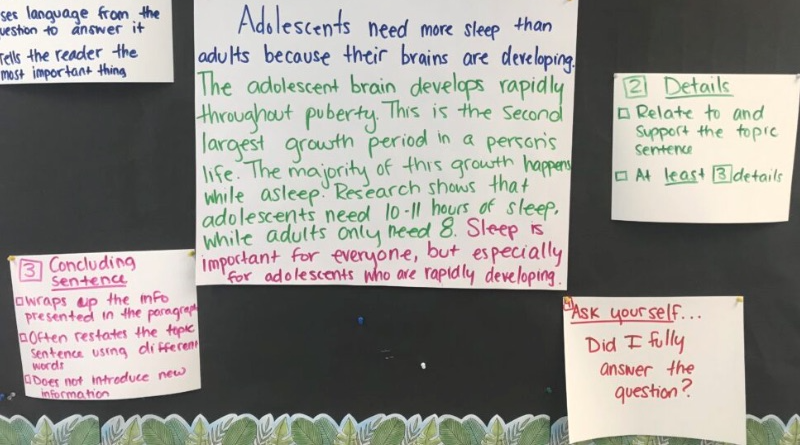 ses language from the
uestion to answer it
Tells the reader the
most important thing
Adolescents need more sleep than
adults because their brains are developing.
The adolescent brain develops rapidly
throughout puberty. This is the second
largest growth period in a person's
life. The majority of this growth happens
while asleep. Research shows that
adolescents need 10-11 hours of sleep,
while adults only need 8. Sleep is
important for everyone, but especially
for adolescents who are rapidly developing.
2 Details
Relate to and
support the topic
sentence
At least 3 details
3 Concluding
Sentence
wraps up the info
presented in the paragraph
Often restates the topic
sentence using different
words
Does not introduce new
information
4 Ask yourself...
Did I fully
answer the
question?